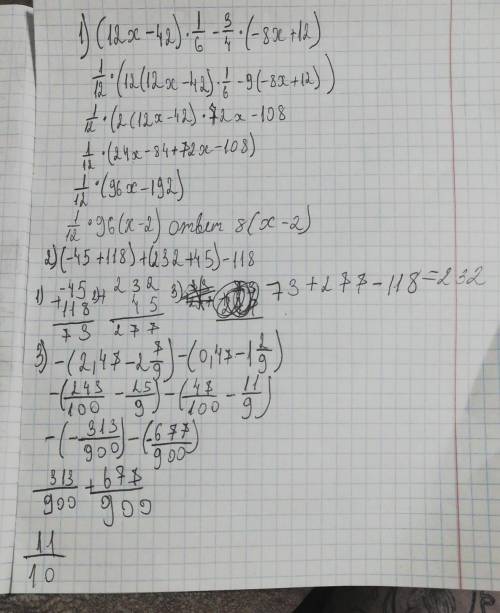 1) (12x-42)·1/6 - 3/4·(-8x+12)
1/12·(12(12x-42)·1/6 - 9(-8x+12))
1/12·(2(12x-42)·72x-108
1/12·(24x-84+72x-108)
1/12·(96x-192)
1/12·96(x-2) ответ 8(x-2)
2)(-45+118)+(232+45)-118
1) -45 + 118 = 73 2) 232 + 45 = 277 3) 73+277-118=232
3) -(2,47-2 7/9)-(0,47-1 2/9)
-(243/100 - 25/9)-(47/100 - 11/9)
-(-313/900)-(-677/900)
313/900 + 677/900
11/10